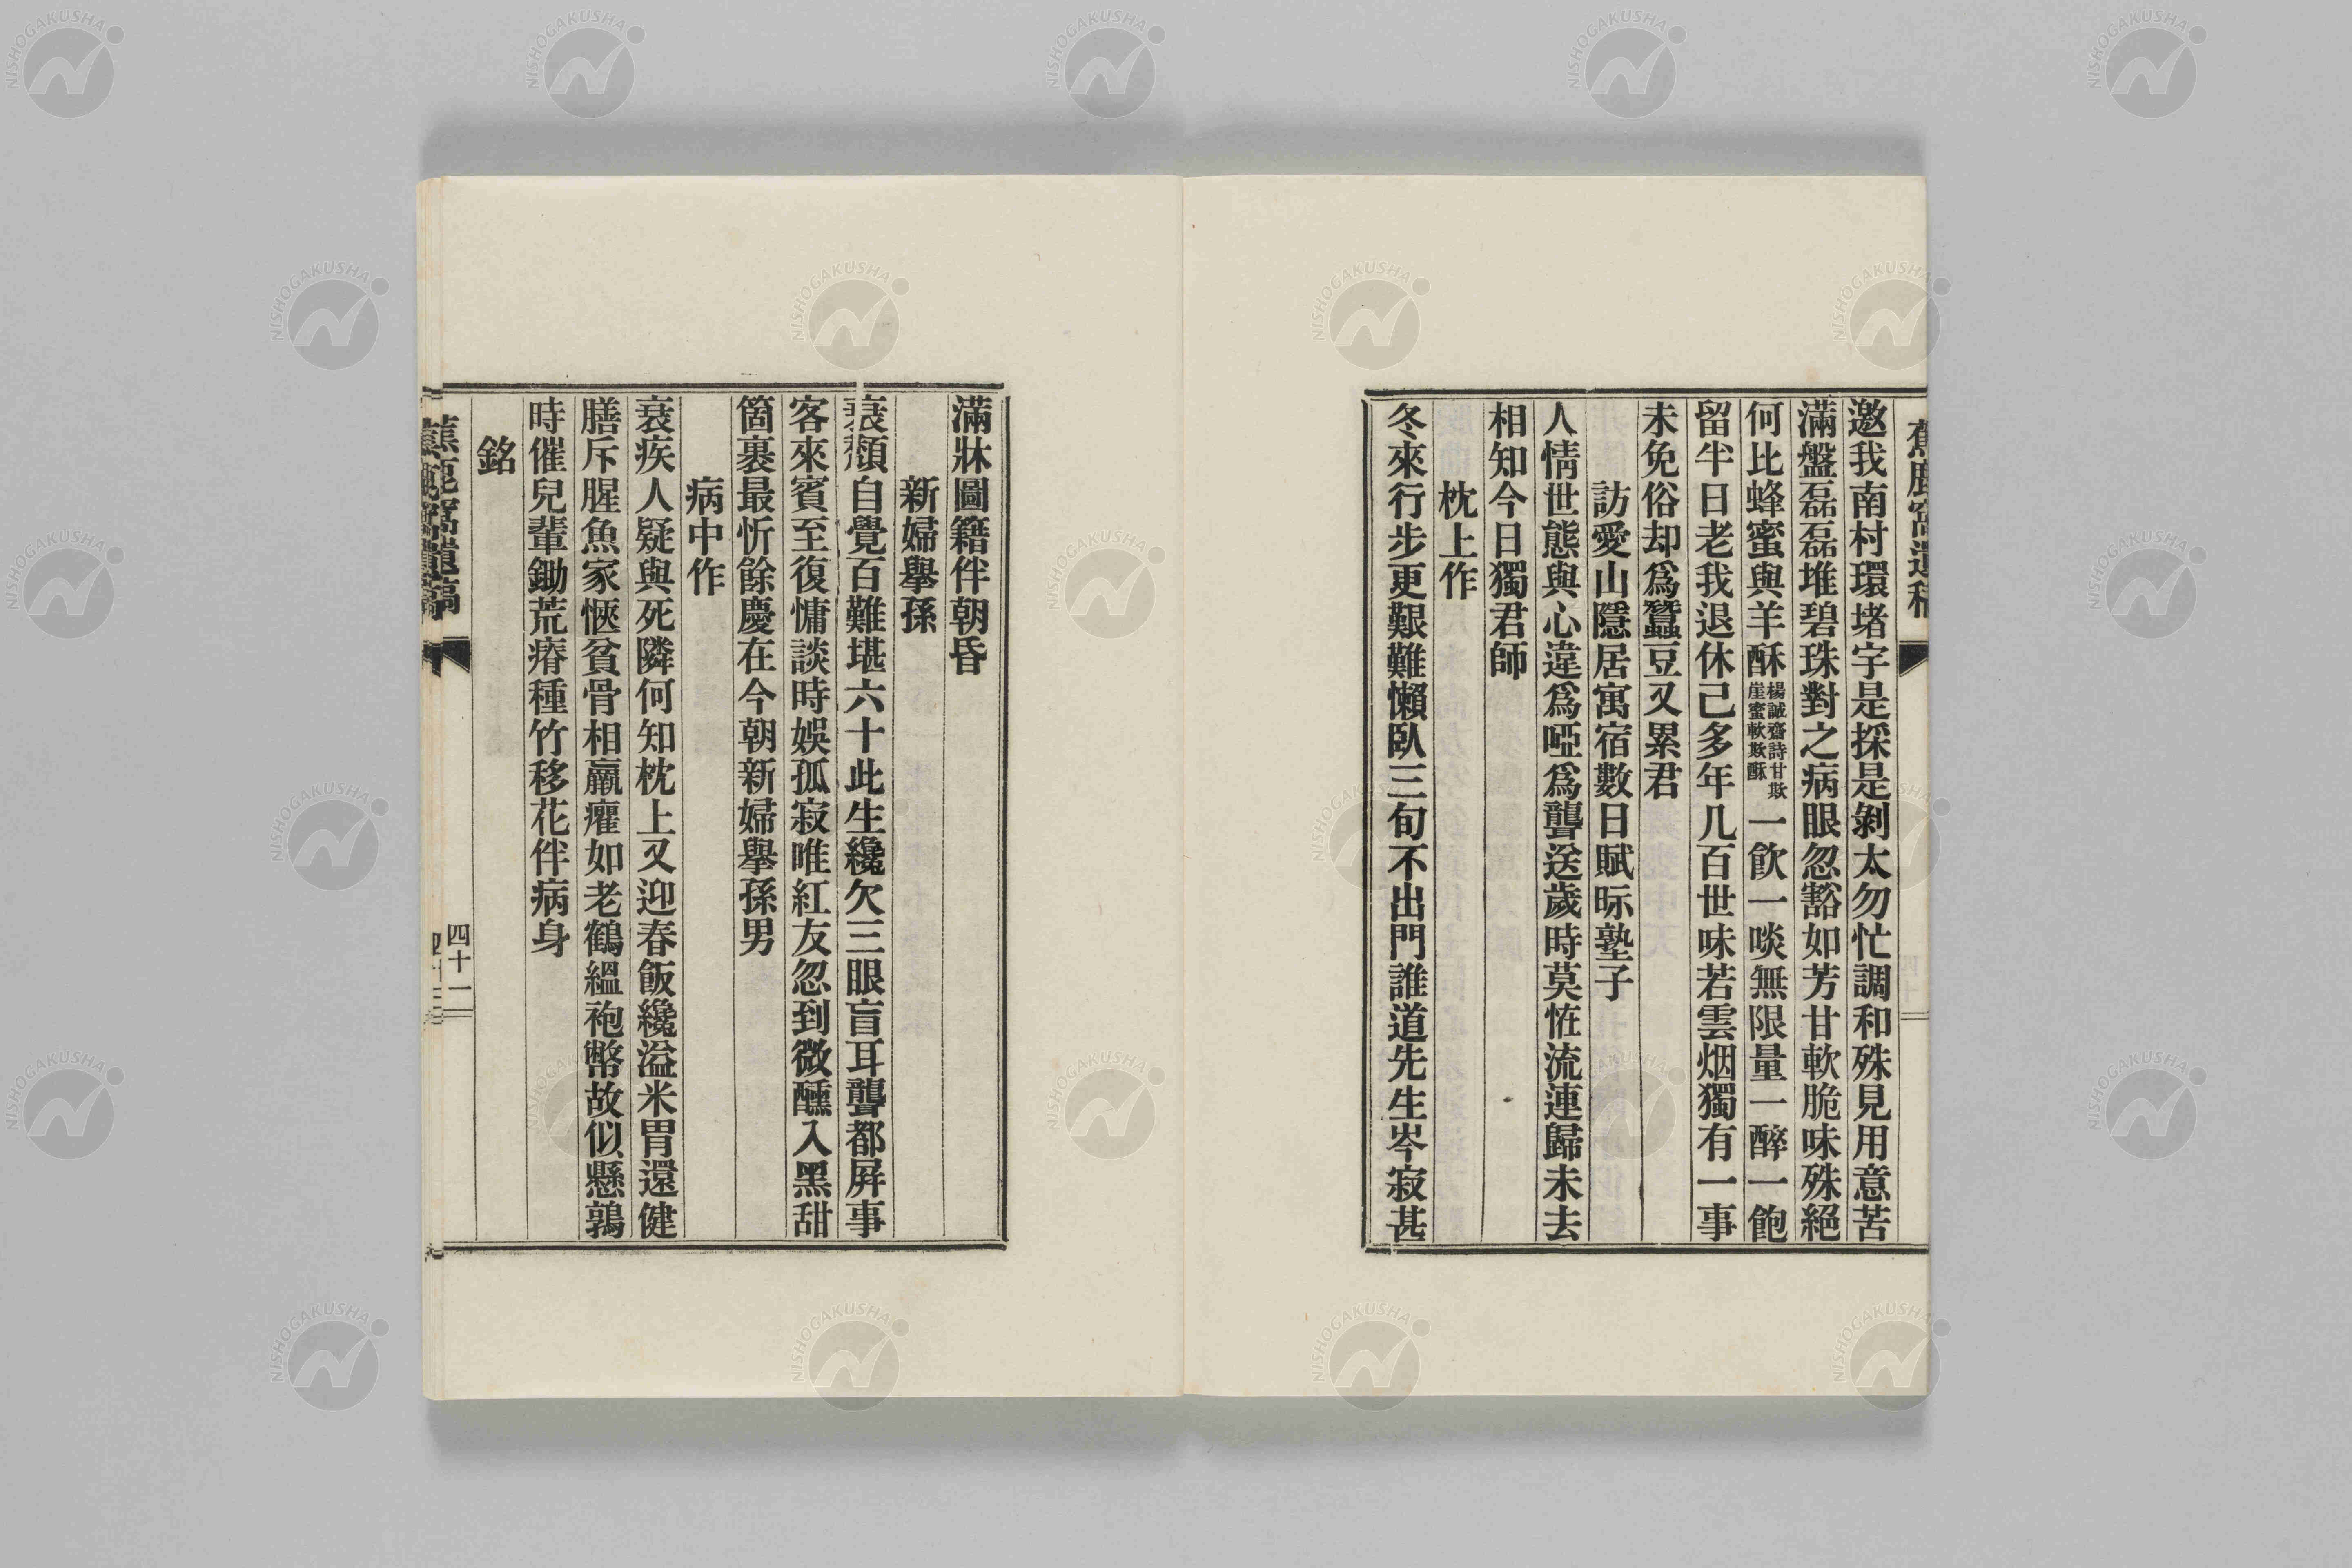 蕉鹿窩遺稿
邀我南村環堵宇是採是剝太勿忙調和殊見用意苦
滿盤磊磊堆碧珠對之病眼忽豁如芳甘軟脆味殊絕
何比蜂蜜與羊酥楊誠齋詩甘欺崖蜜軟欺酥一飮一啖無限量一醉一飽
留半日老我退休己多年几百世味若雲烟獨有一事
未免俗却爲蠶豆又累君
訪愛山隱居寓宿數日賦眎塾子
人情世態與心違爲啞爲聾送歲時莫恠流連歸未去
相知今日獨君師
枕上作
冬來行步更艱難懶臥三旬不出門誰道先生岑寂甚
滿牀圖籍伴朝昏
新婦擧孫
衰顏自覺百難堪六十此生纔欠三眼盲耳聾都屛事
客來賓至復慵談時娛孤寂唯紅友忽到微醺入黑甜
箇裹最忻餘慶在今朝新婦擧孫男
病中作
衰疾人疑與死隣何知枕上又迎春飯纔溢米胃還健
膳斥腥魚家愜貧骨相羸癯如老鶴縕袍幣故似懸鶉
時催兒輩鋤荒瘠種竹移花伴病身
銘
蕉鹿窩遺稿
四十一
四十三
NISHOGAKUSHA